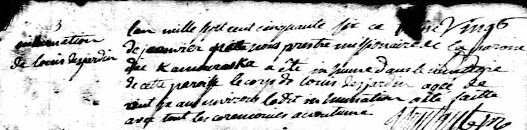 inhumation
de Louis desjardin
L'an mille sept cent cinquante six ce vingt
de janvier nous prestre missionaire de la paroisse
de Kamouraska a été inhumé dans le cimetiere
de cette paroisse le corps de Louis desjardin agé de
ans environ la dit inhumation a été faitte
avec tout les ceremonies accoutumé